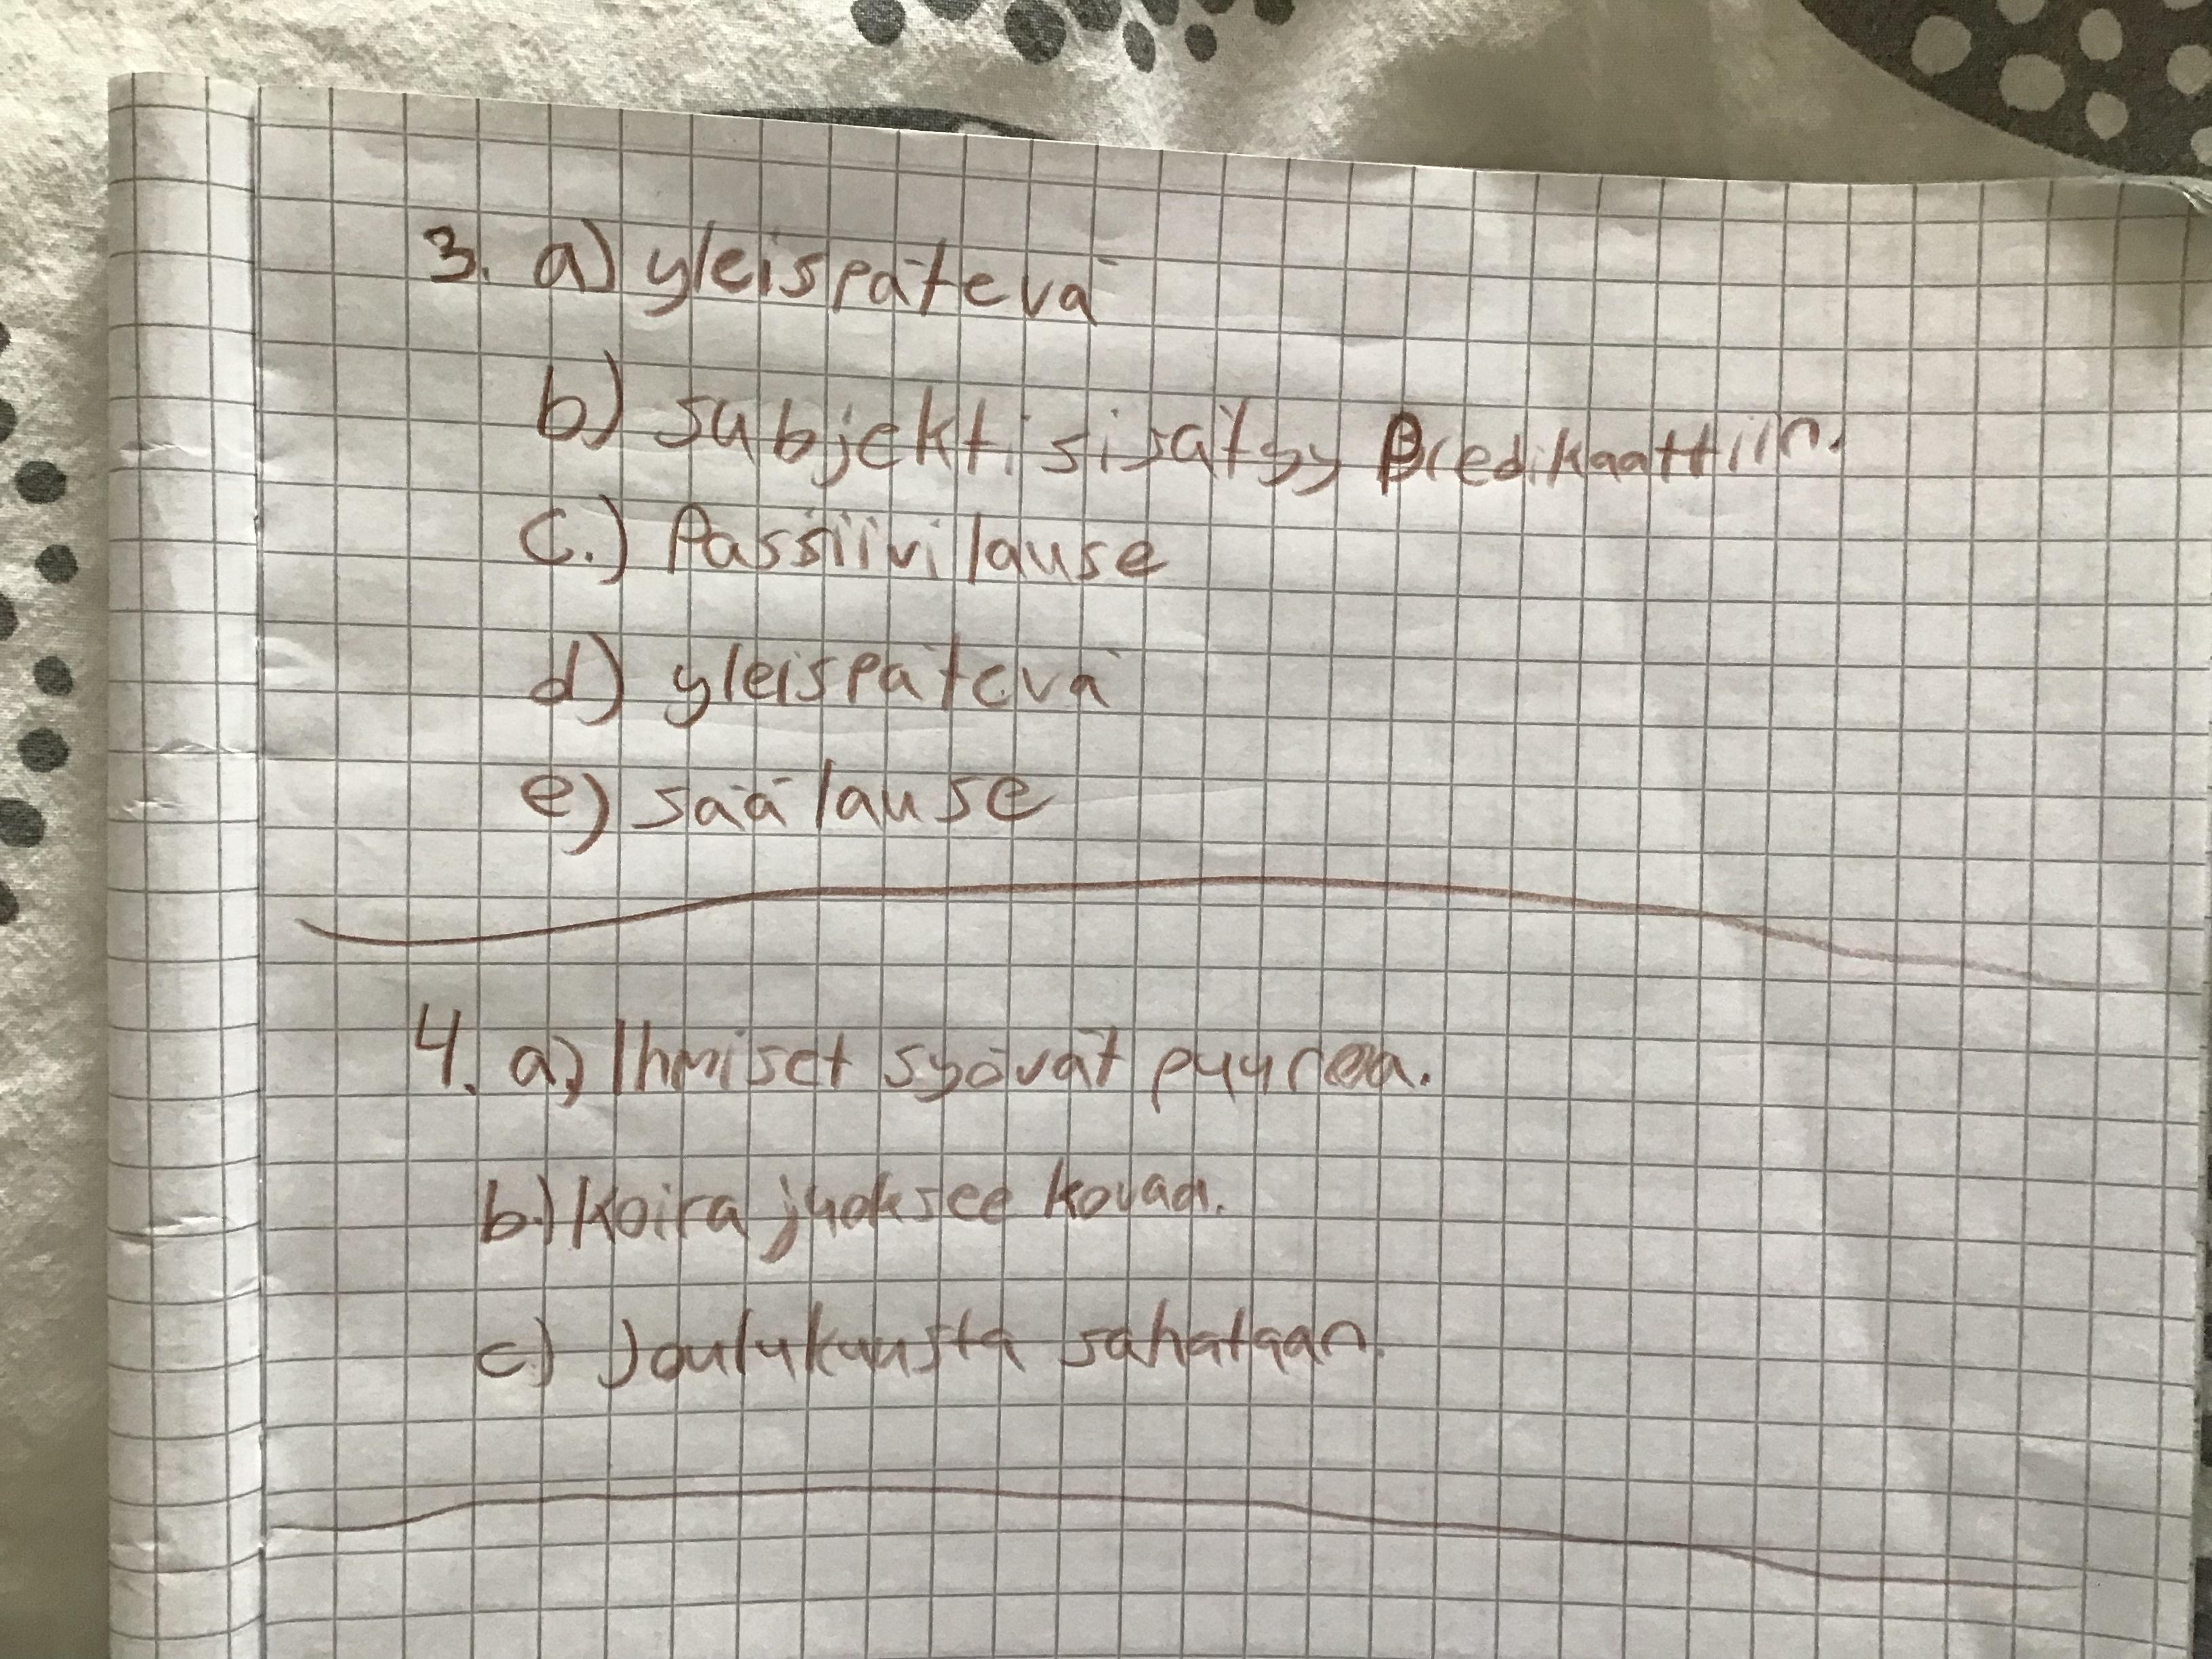 3. a) yleispätevä
b) subjekti sisältyy Predikaattiin.
c.) Passiivilause
d) yleispätevä
e) säälause
4. a) Ihmiset syövät puuroa.
b.) Koira juoksee kovaa.
c) Joulukuusta sahataan.